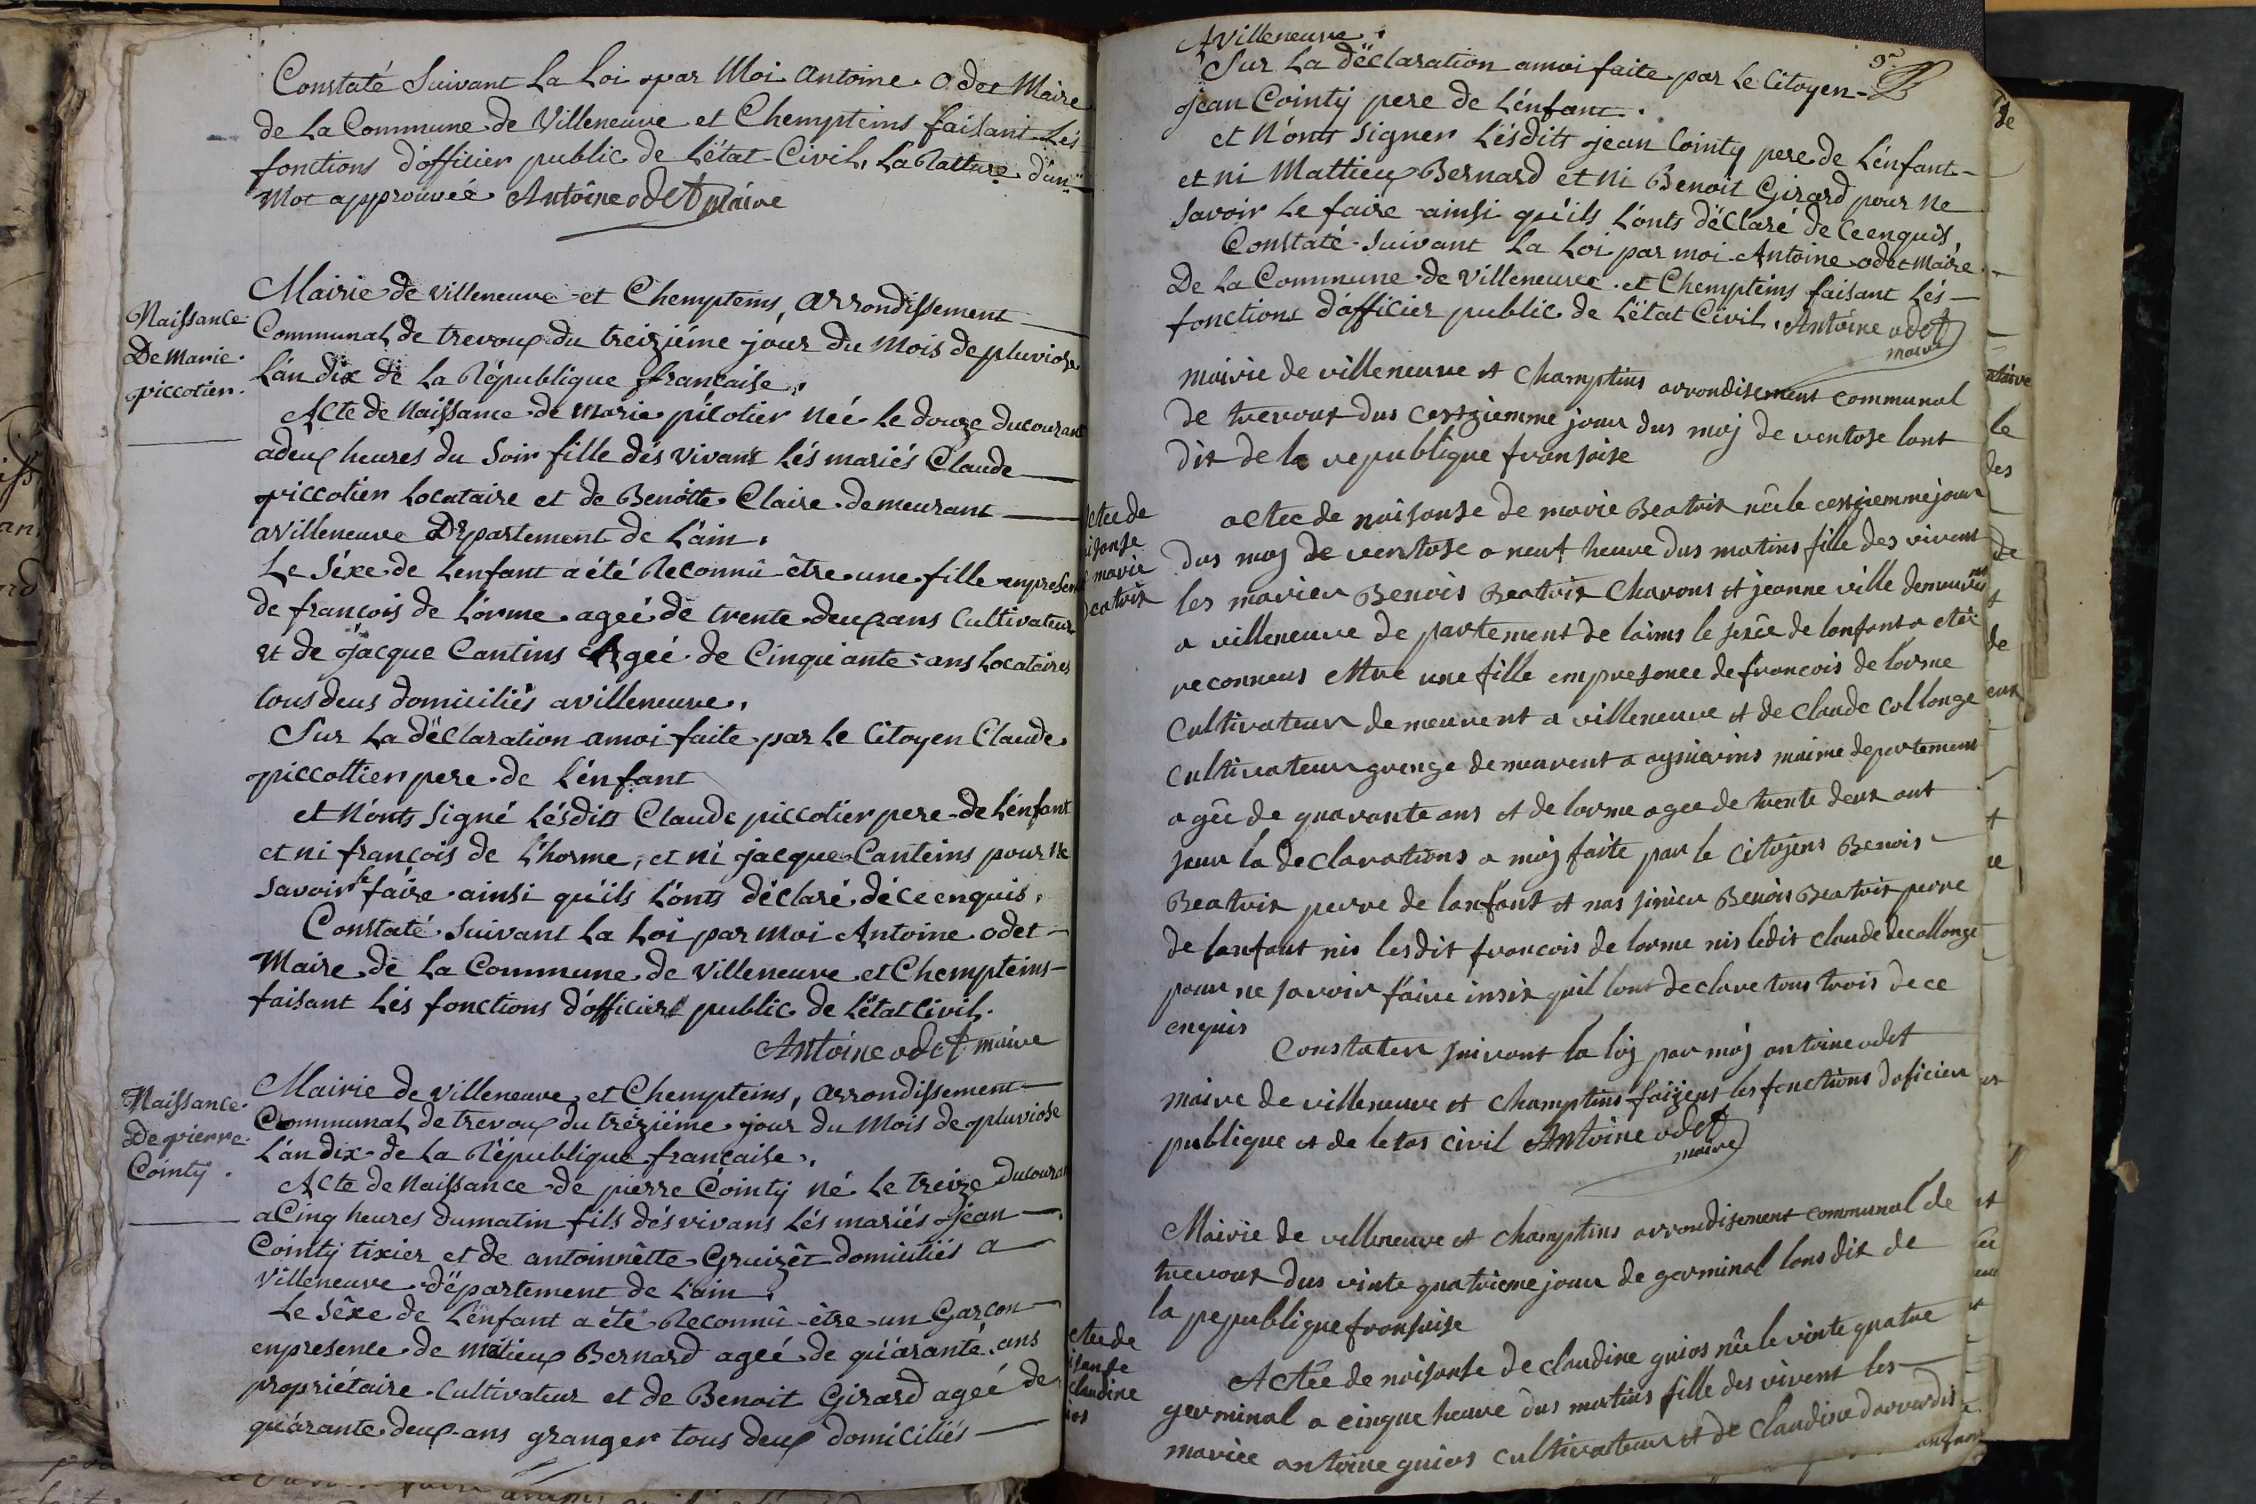 Constaté Suivant La Loi par Moi Antoine Odet Maire
de La Commune de Villeneuve et Chempteins faisant Lés
fonctions d'officier public de L'état Civil, La Rature d'un
Mot approuvée Antoine odet maire
Naissance
De Marie
piccotier.
Mairie de villeneuve et Chempteins, arrondissement
Communal de trevoux du treiziéme jour du Mois de pluviose
L'an dix de La République francaise.
Acte de Naissance de Marie picotier Née Le douze du courant
a deux heures du Soir fille dés vivant Lés mariés Claude
piccotier Locataire et de Benoitte Claire demeurant
a villeneuve Département de L'ain.
Le Séxe de Lenfant a été Reconnû être une fille en presence
de francois de L'orme agée de trente deux ans Cultivateur
et de Jacque Cantins Agée de Cinquante ans Locataires
tous deus domiciliés a villeneuve.
Sur La déclaration a moi faite par Le Citoyen Claude
piccottier pere de L'énfant
et N'onts Signé Lésdits Claude piccotier pere de L'énfant
et ni francois de L'horme, et ni jacque Canteins pour Ne
Savoir le faire ainsi qu'ils L'onts déclaré dé ce enquis.
Constaté Suivant La Loi par Moi Antoine odet
Maire de La Commune de Villeneuve et Chempteins
faisant Lés fonctions d'officier public de L'état Civil.
Antoine odet maire
Naissance
De pierre
Cointy.
Mairie de villeneuve et Chempteins, arrondissement
Communal de trevoux du tréziéme jour du Mois de pluviose
L'an dix de La République francaise.
Acte de Naissance de pierre Cointy né Le treize du courant
a Cinq heures du matin fils dés vivans Lés mariés Jean
Cointy tixier et de antoinnêtte Gruizêt domiciliés a
Villeneuve département de L'ain.
Le Sêxe de L'enfant a été Reconnû être un Garcon
en presence de Matieux Bernard agée de quarante ans
propriétaire Cultivateur et de Benoit Girard ageé de
quarante deux ans granger tous deux domiciliés
A villeneuve.
Sur La déclaration a moi faite par Le Citoyen
Jean Cointy pere de L'énfant.
et N'onts Signer Lésdits Jean Cointy pere de L'énfant
et ni Mattieu Bernard et ni Benoit Girard pour Ne
Savoir Le faire ainsi qu'ils L'onts déclaré de Ce enquis
Constaté Suivant La Loi par moi Antoine odet Maire
De La Commune de Villeneuve et Chempteins faisant Lés
fonctions d'officier public de L'état Civil. Antoine odet
maire
mairie de villeneuve et champtins arrondisement communal
de trevoux dus cesziemme jour dus moj de ventose lant
dix de la republique fransaise
actee de
marie
acteé de naisanse de marie Beatrix née le cesziemme jour
dus moj de ventose a neuf heure dus matins fille des vivent
les marier Benois Beatrix Charons et jeanne ville demeurent
a villeneuve de partement de lains le sexce de lanfant a etée
reconneus ettre une fille empresence de francois de lorme
cultivateur demeurent a villeneuve et de claude collonge
cultivateur grenge demeurent a meime departement
agée de quarante ans et de lorme agee de trente deux ant
seur la declarations a moj faite par le citojens Benois
Beatrix perre de lanfant et nas sinier Benois Beatrix perre
de lanfant nis lesdit francois de lorme nis ledit claude de collonge
pour ne savoir faire insix quil lont declare tous trois de ce
enquis
constater suivant la loj par moj antoine odet
maire de villeneuve et champtins faizent les fonctions doficier
publique et de letas civil Antoine odet
maire
Mairie de villeneuve et champtins arrondisement communal de
trevoux dus vinte quatrieme jour de germinal lans dix de
la republique fransaise
claudine
Actée de naisanse de claudine guios née le vinte quatre
germinal a cinque heure dus matins fille des vivent les
mariee antoine guios cultivateur et de claudine